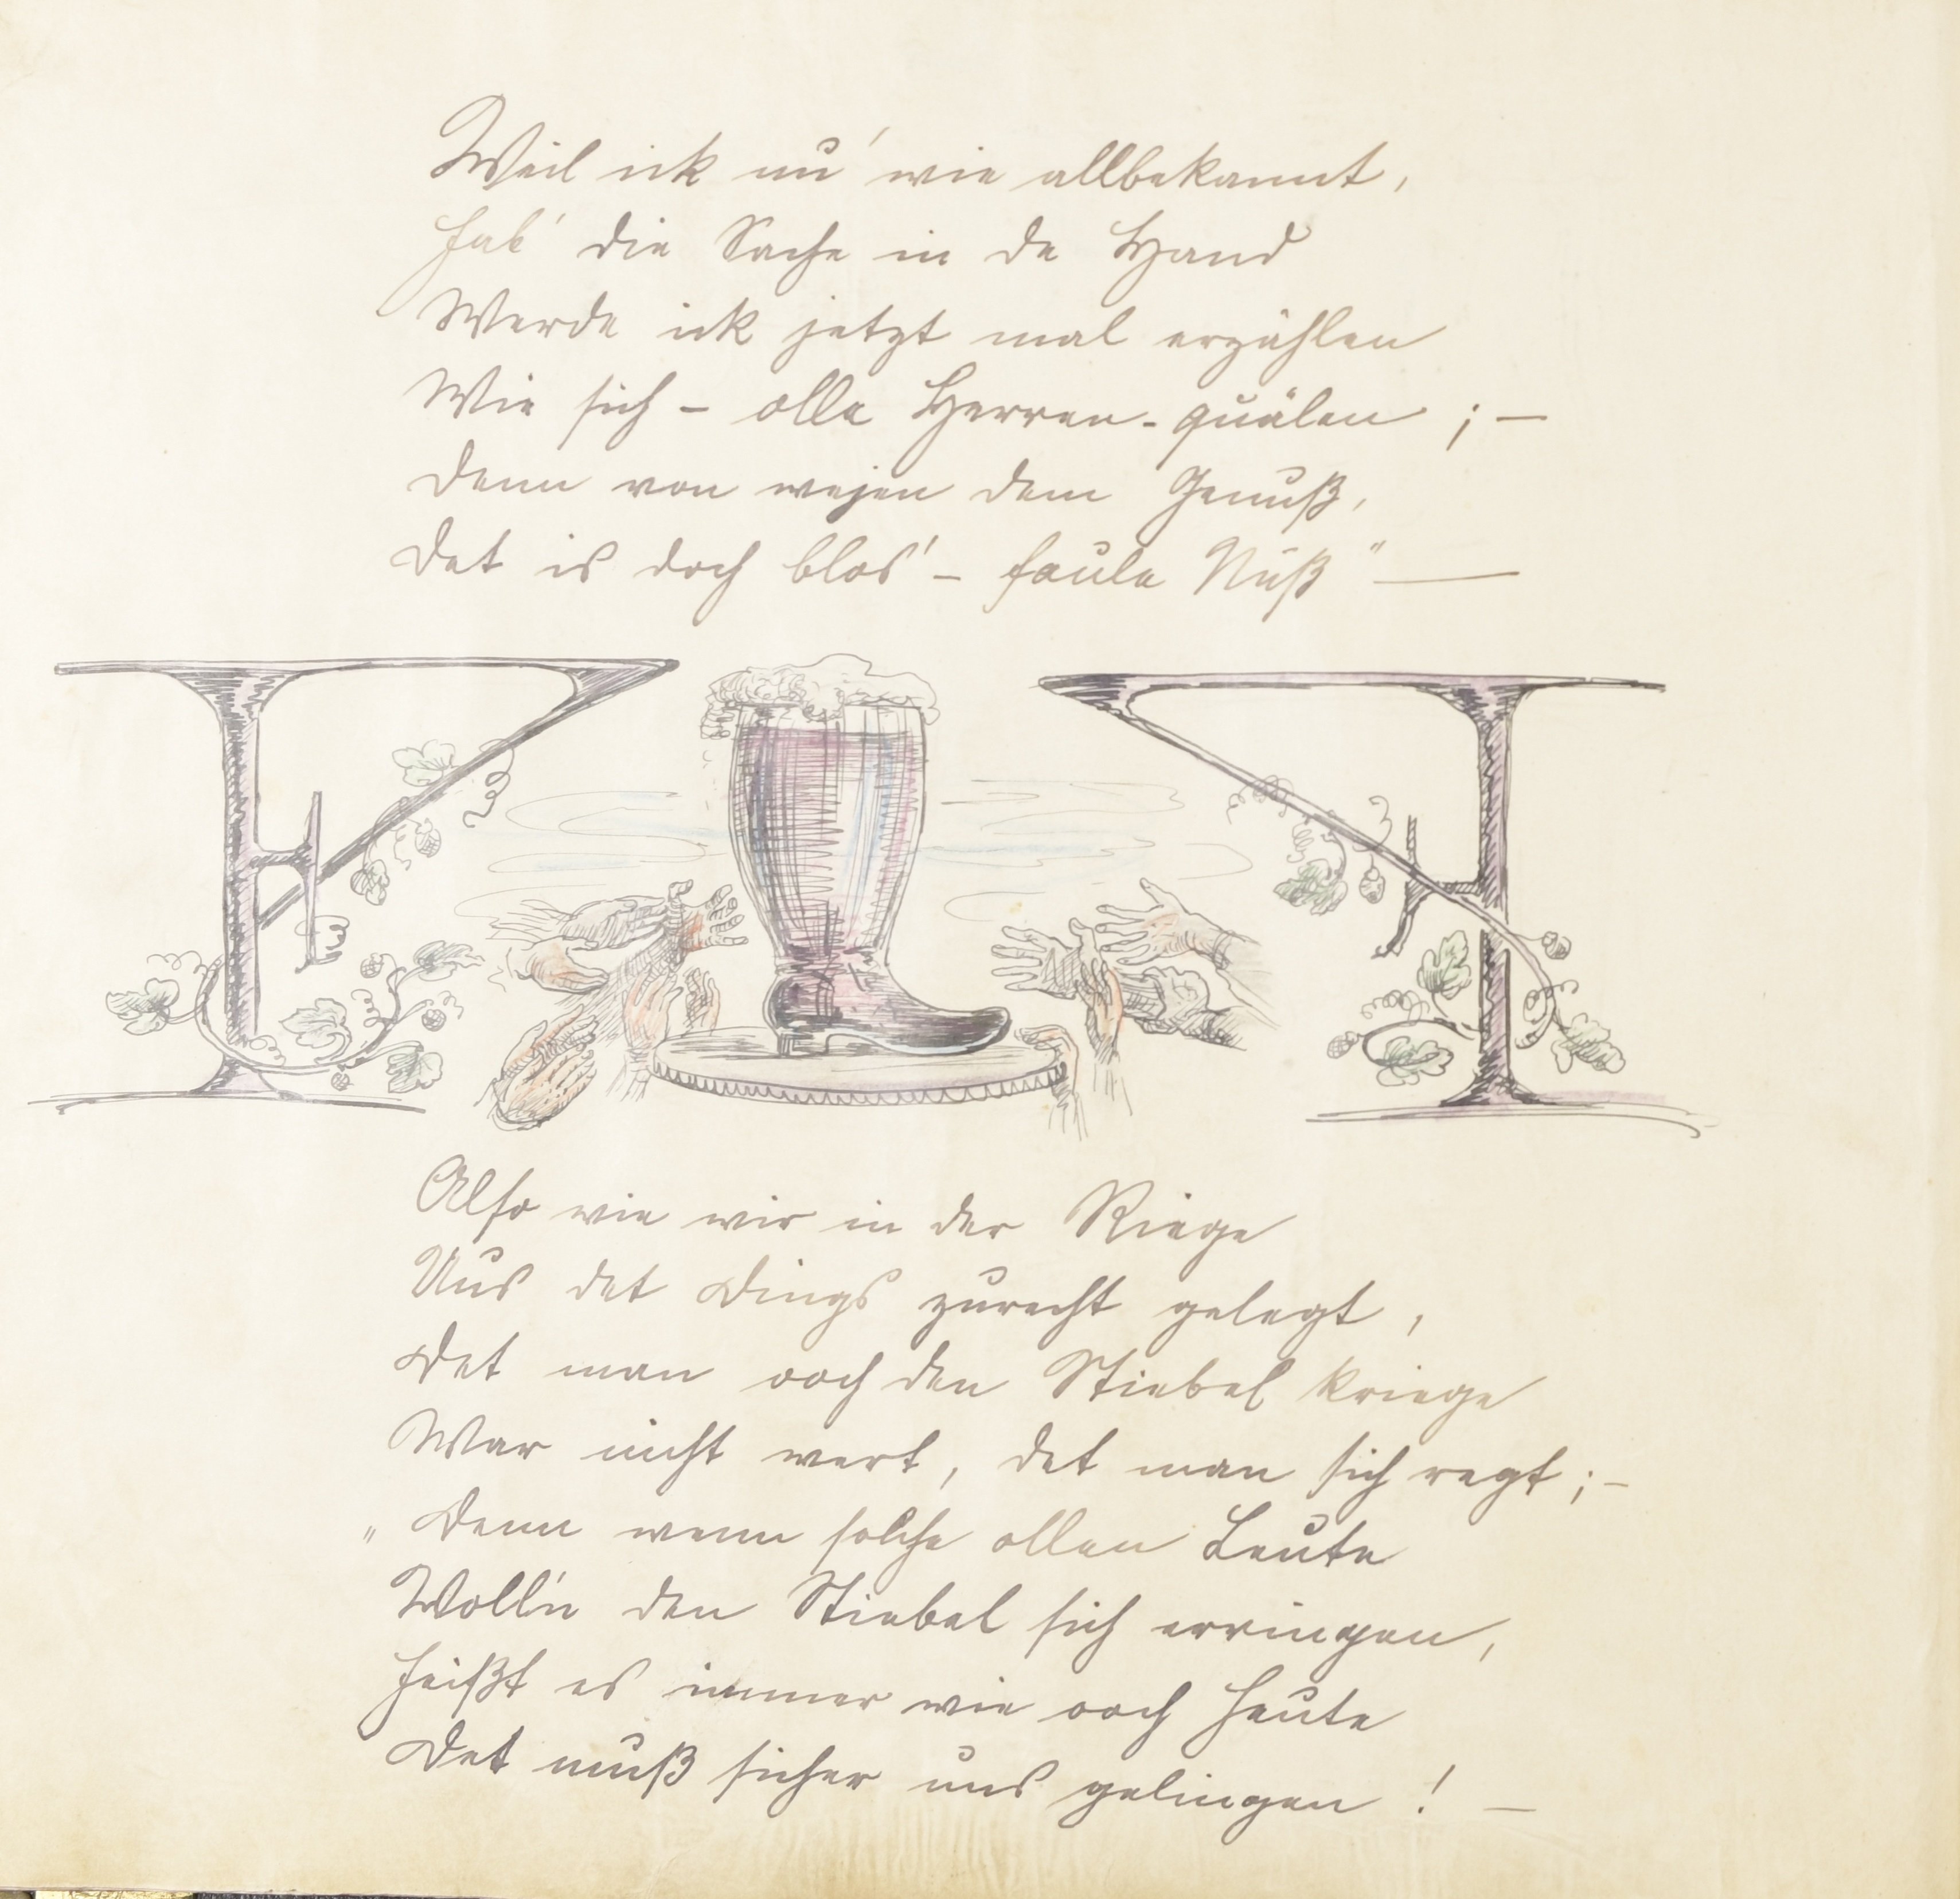 Weil ick nu' wie allbekannt,
Hab' die Sache in de Hand
Werde ick jetzt mal erzählen
Wie sich – olle Herren – quälen ; –
Denn von wejen dem Genuß,
Det is doch blos' – faule Nuß" —
Also wie wir in der Riege
Uns det Dings zurecht gelegt,
Det man ooch den Stiebel kriege
War nicht wert, det man sich regt; –
„ Denn wenn solche ollen Leute
Woll'n den Stiebel sich erringen,
Heißt es immer wie ooch heute
Det muß sicher uns gelingen ! –